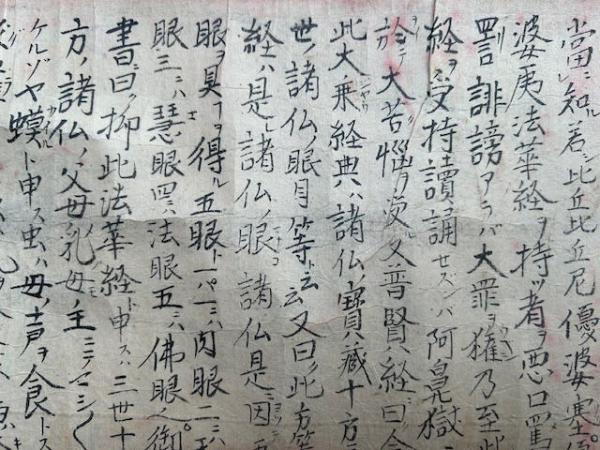 當ニ知ル若シ比丘比丘尼優婆塞優
婆夷法華経ヲ持ツ者ヲ悪口罵
詈誹謗アラバ大罪ヲ獲乃至此
経ヲ受持讀誦セズンバ阿鼻獄ニ
於テ大苦惱ヲ受ク又普賢経ニ曰ク
此大乗経典ハ諸仏ノ寶藏十方三
世ノ諸仏ノ眼目等ト云云又曰ク此方等
経ハ是レ諸仏ノ眼諸仏是ニ因テ五
眼ヲ具フヲ得ル五眼トハ一ニハ肉眼二ニハ天
眼三ニハ慧眼四ニハ法眼五ニハ佛眼也御
書曰ク抑此法華経ト申スハ三世十
方ノ諸仏ノ父母乳母ノ主ニテマシ〳〵
ケルゾヤ蟆ト申ス虫ハ母ノ声ヲ食トス